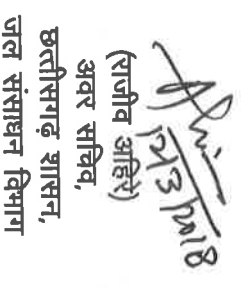 12/3/2018
(राजीव अहिरे)
अवर सचिव,
छत्तीसगढ़ शासन,
जल संसाधन विभाग